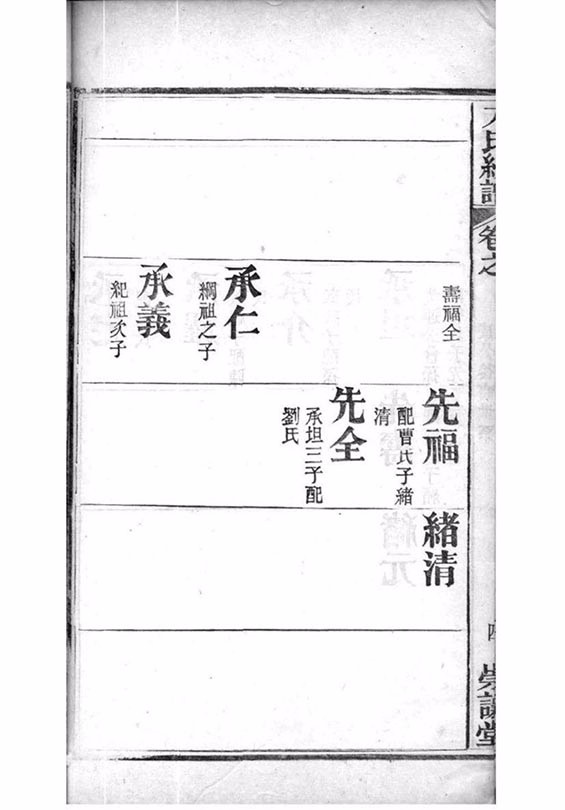 卷之
壽福全
先福
配曹氏子緒
清
緒清
先全
承坦三子配
劉氏
承仁
綱祖之子
承義
紀祖次子